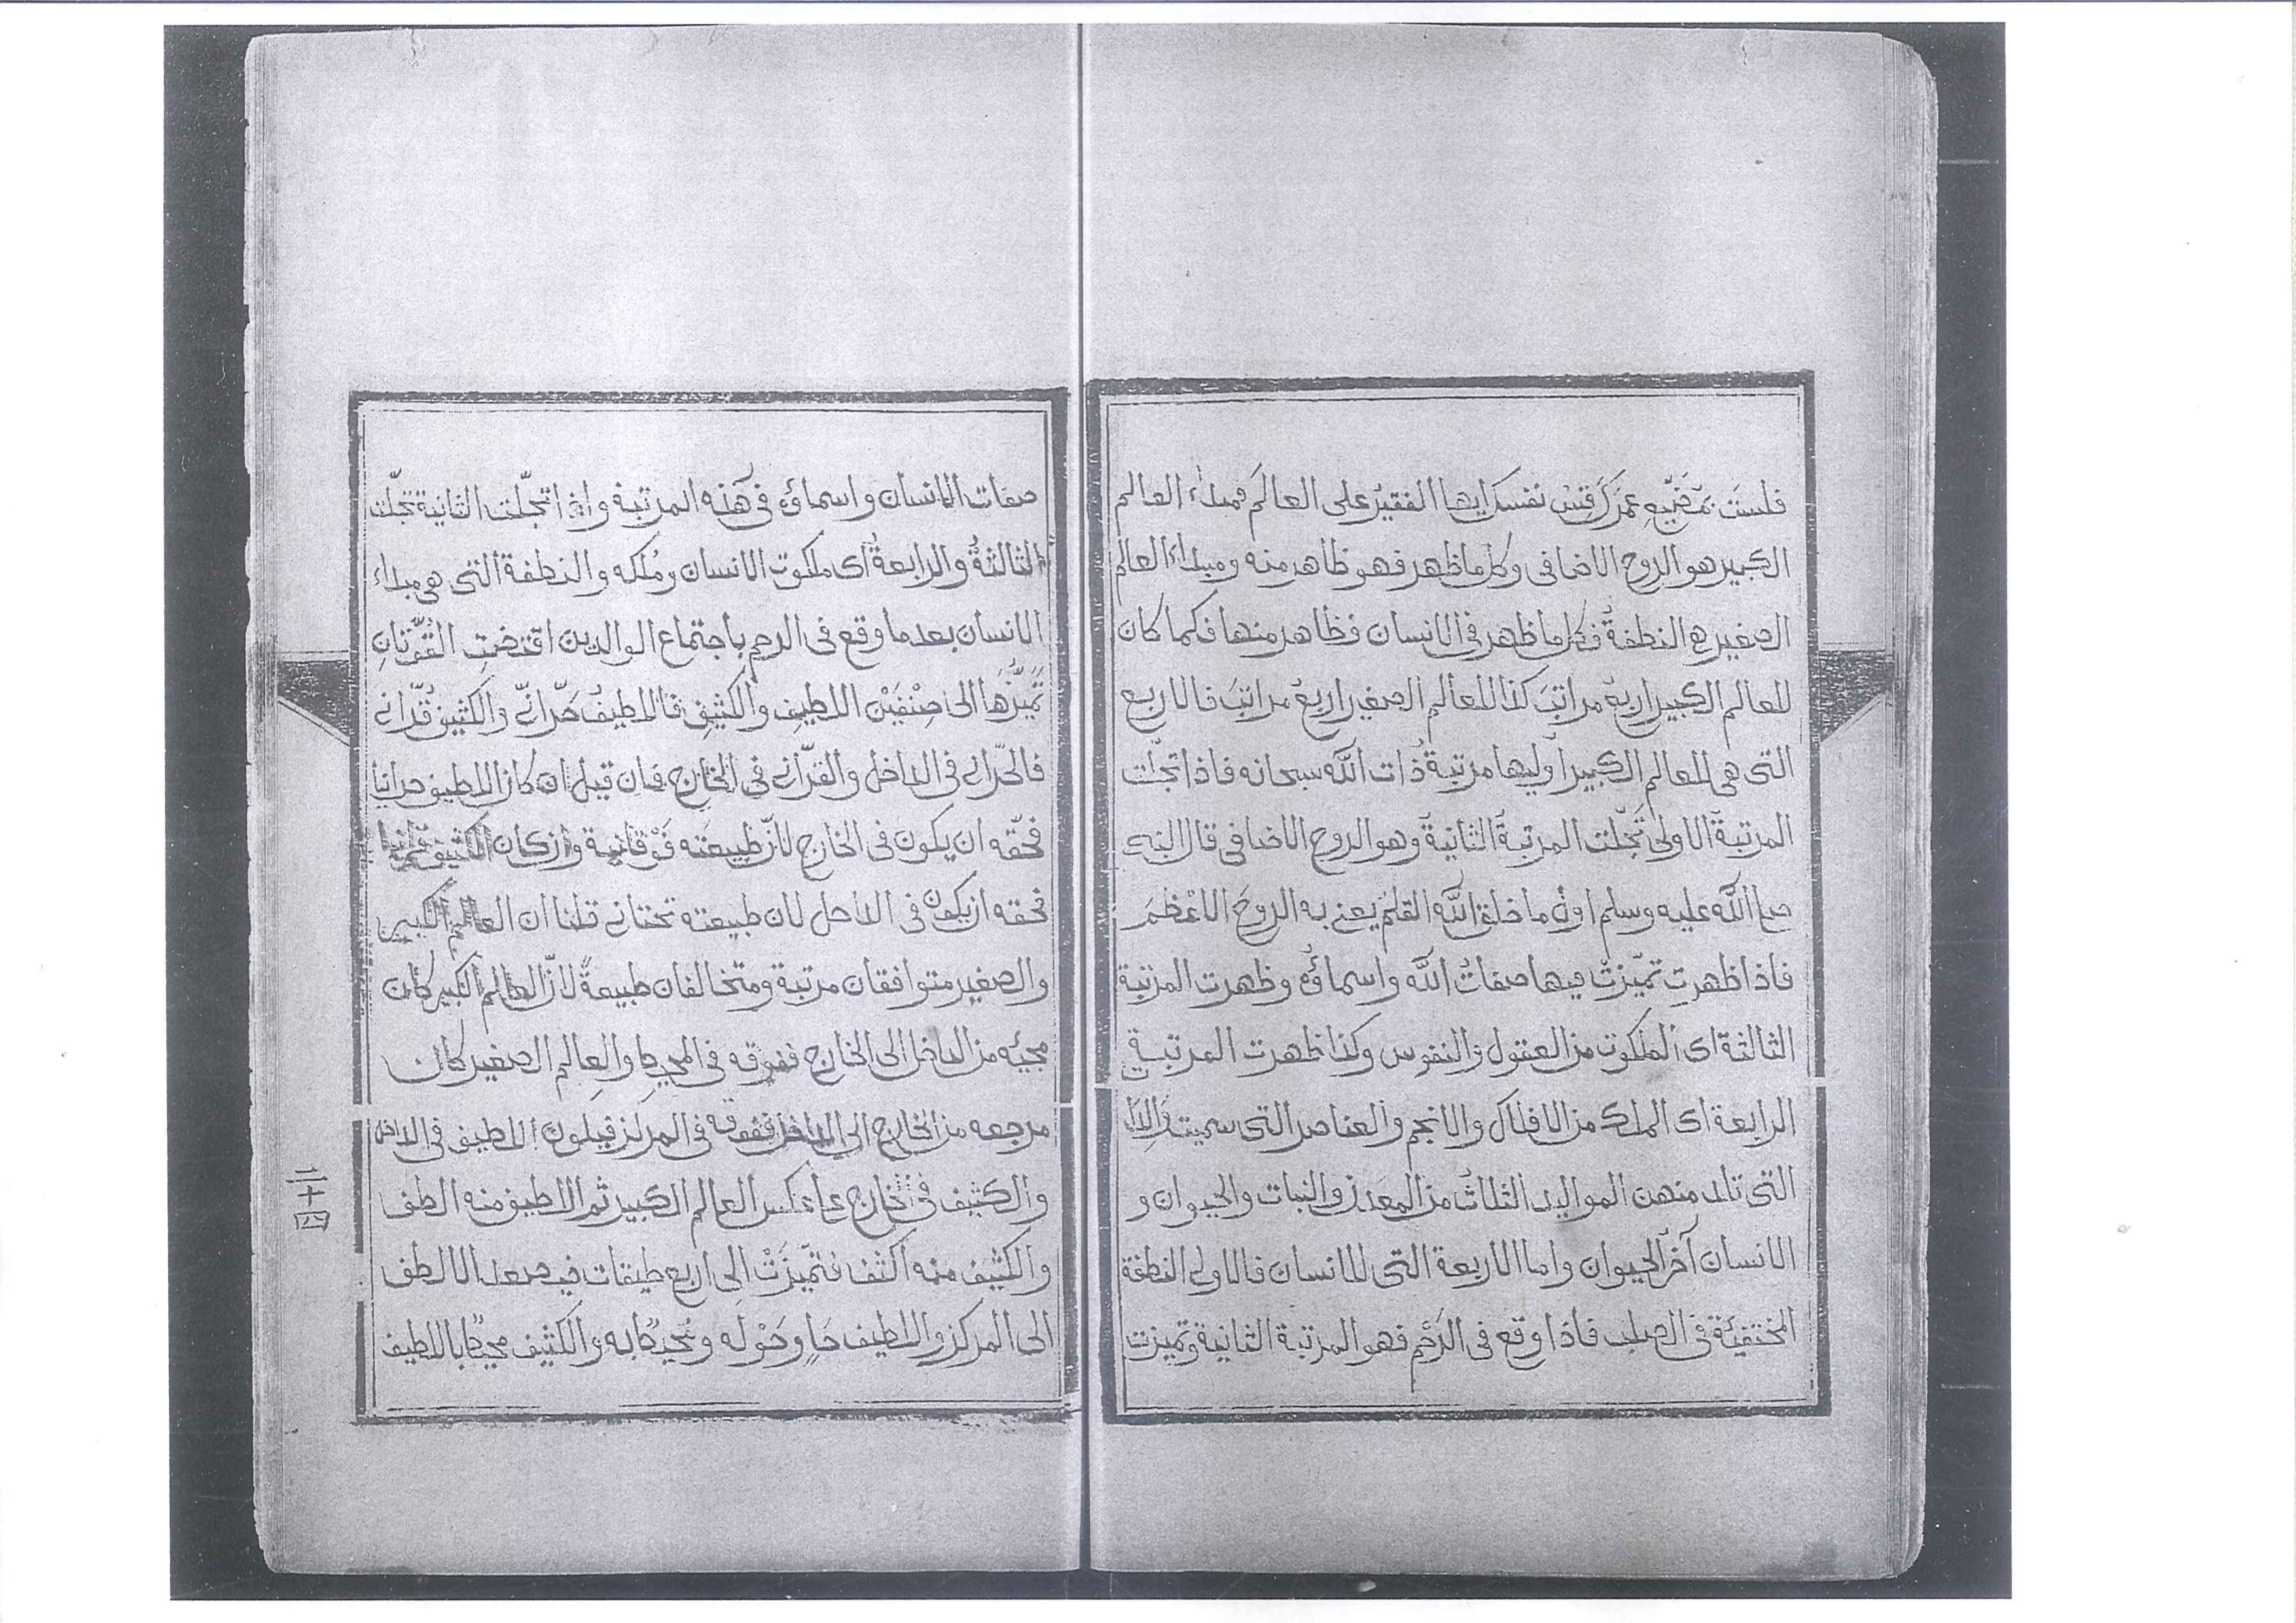 فلست بمضيع عمرك قس نفسك ايها الفقير على العالم فمبداء العالم
الكبير هو الروح الاضافى وكل ما ظهر فهو ظاهر منه ومبداء العالم
الصغير هى النطفة فكل ما ظهر فى الانسان فظاهر منها فكما كان
للعالم الكبير اربعة مراتب كذا للعالم الصغير اربعة مراتب فالاربع
التى هى للعالم الكبير اوليها مرتبة ذات الله سبحانه فاذا تجلت
المرتبة الاولى تجلت المرتبة الثانية وهو الروح الاضافى قال النبى
صلى الله عليه وسلم اول ما خلق الله القلم يعنى به الروح الاعظم
فاذا ظهرت تميزت فيها صفات الله واسماؤه وظهرت المرتبة
الثالثة اى الملكوت من العقول والنفوس وكذا ظهرت المرتبة
الرابعة اى الملك من الافلاك والانجم والعناصر التى سميت
التى تلد منهن المواليد الثلاث من المعدن والنبات والحيوان و
الانسان آخر الحيوان واما الاربعة التى للانسان فالاولى النطفة
المختفية فى الصلب فاذا وقع فى الرحم فهو المرتبة الثانية وتميزت
صفات الانسان واسماؤه فى هذه المرتبة واذا تجلت الثانية تجلت
الثالثة والرابعة اى ملكوت الانسان وملكه والنطفة التى هى مبداء
الانسان بعد ما وقع فى الرحم باجتماع الوالدين اقتضت القوتان
تميزها الى صنفين اللطيف والكثيف فاللطيف حرانى والكثيف قرانى
فالحرانى فى الداخل والقرانى فى الخارج فان قيل ان كان اللطيف حرانيا
فحقه ان يكون فى الخارج لان طبيعته فوقانية وان كان الكثيف قرانيا
فحقه ان يكون فى الداخل لان طبيعته تحتانى قلنا ان العالم الكبير
والصغير متوافقان مرتبة ومتخالفان طبيعة لان العالم الكبير كان
مجيئه من الداخل الى الخارج ففوقه فى المحيط والعالم الصغير كان
مرجعه من الخارج الى الداخل ففوقه فى المركز فيكون اللطيف فى الداخل
والكثيف فى الخارج على عكس العالم الكبير ثم اللطيف منه الطف
والكثيف منه اكثف فتميزت الى اربع طبقات فيصعد الالطف
الى المركز واللطيف حاو حوله ومحيطا به والكثيف محيطا باللطيف
二十四